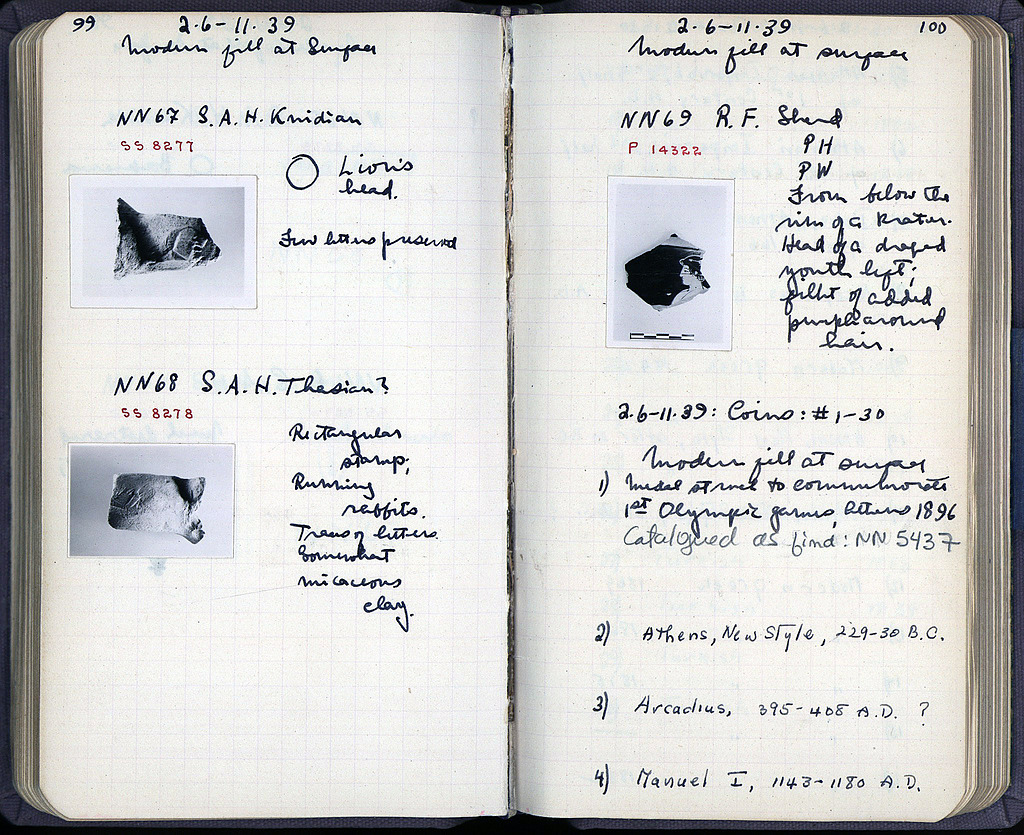 99
2·6-11·39
Modern fill at Surface
NN67 S.A.H. Knidian
SS 8277
Lion's
head.
Few letters preserved
NN68 S.A.H. Thasian?
SS 8278
Rectangular
stamp;
Running
rabbits.
Traces of letters.
Somewhat
micaceous
clay.
2·6-11·39
100
Modern fill at surface
NN69 R.F. Sherd
P 14322
PH
PW
From below the
rim of a krater.
Head of a draped
youth left;
fillet of added
purple around
hair.
2·6-11·39: Coins: #1-30
Modern fill at surface
1) Medal struck to commemorate
1st Olympic games, Athens 1896
Catalogued as find: NN 5437
2) Athens, New Style, 229-30 B.C.
3) Arcadius, 395-408 A.D. ?
4) Manuel I, 1143-1180 A.D.